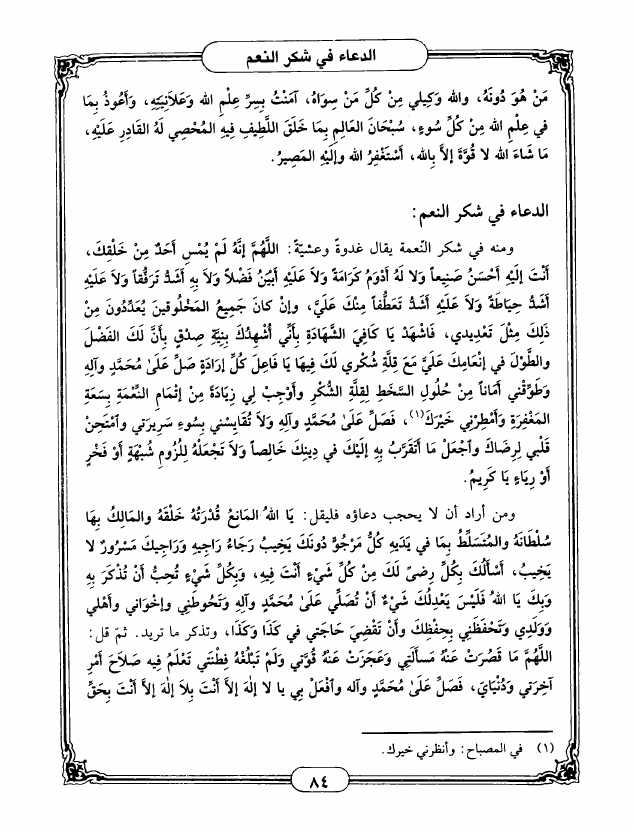 الدعاء في شكر النعم
مَنْ هُوَ دُونَهُ، والله وَكِيلي مِنْ كُلِّ مَنْ سِوَاهُ، آمَنْتُ بِسِرِّ عِلْمِ الله وَعَلاَنِيَتِهِ، وَأَعُوذُ بِمَا
في عِلْمِ الله مِنْ كُلِّ سُوءٍ، سُبْحَانَ العالِمِ بِمَا خَلَقَ اللَّطِيفِ فِيهِ المُحْصِي لَهُ القَادِرِ عَلَيْهِ،
مَا شَاءَ الله لا قُوَّةَ إلاَّ بِالله، أَسْتَغْفِرُ الله وإلَيْهِ المَصِيرُ.
الدعاء في شكر النعم:
ومنه في شكر النّعمة يقال غدوةً وعشيّةً: اللَّهُمَّ إنَّهُ لَمْ يُمْسِ أَحَدٌ مِنْ خَلْقِكَ،
أَنْتَ إلَيْهِ أَحْسَنُ صَنِيعاً وَلا لَهُ أَدْوَمُ كَرَامَةً وَلاَ عَلَيْهِ أَبْيَنُ فَضْلاً وَلاَ بِهِ أَشَدُّ تَرَفُّقاً وَلاَ عَلَيْهِ
أَشَدُّ حِيَاطَةً وَلاَ عَلَيْهِ أَشَدُّ تَعَطُّفاً مِنْكَ عَلَيَّ، وإنْ كانَ جَمِيعُ المَخْلُوقينَ يُعَدِّدُونَ مِنْ
ذلِكَ مِثْلَ تَعْدِيدي، فَاشْهَدْ يَا كَافِيَ الشَّهَادَةِ بِأَنِّي أُشْهِدُكَ بِنِيَّةِ صِدْقٍ بِأَنَّ لَكَ الفَضْلَ
والطَّوْلَ في إنْعَامِكَ عَلَيَّ مَعَ قِلَّةِ شُكْري لَكَ فِيهَا يَا فَاعِلَ كُلِّ إرَادَةٍ صَلِّ عَلَىٰ مُحَمَّدٍ وآلِهِ
وَطَوِّقْني أَمَاناً مِنْ حُلُولِ السَّخَطِ لِقِلَّةِ الشُّكْرِ وَأَوْجِبْ لِي زِيَادَةً مِنْ إتْمَامِ النِّعْمَةِ بِسَعَةِ
المَغْفِرَةِ وَأَمْطِرْنِي خَيْرَكَ(١)، فَصَلِّ عَلَىٰ مُحَمَّدٍ وآلِهِ وَلاَ تُقَايِسْنِي بِسُوءِ سَرِيرَتي وٱمْتَحِنْ
قَلْبي لِرِضَاكَ وٱجْعَلْ مَا أَتَقَرَّبُ بِهِ إلَيْكَ في دِينِكَ خَالِصاً وَلاَ تَجْعَلْهُ لِلُزُومِ شُبْهَةٍ أَوْ فَخْرٍ
أَوْ رِيَاءٍ يَا كَرِيمُ.
ومن أراد أن لا يحجب دعاؤه فليقل: يَا اللهُ المَانِعُ قُدْرَتُهُ خَلْقَهُ والمَالِكُ بِهَا
سُلْطَانَهُ والمُتَسَلِّطُ بِمَا في يَدَيْهِ كُلُّ مَرْجُوٍّ دُونَكَ يَخِيبُ رَجَاءُ رَاجِيهِ وَرَاجِيكَ مَسْرُورٌ لا
يَخِيبُ، أَسْأَلُكَ بِكُلِّ رِضىً لَكَ مِنْ كُلِّ شَيْءٍ أَنْتَ فِيهِ، وَبِكُلِّ شَيْءٍ تُحِبُّ أَنْ تُذْكَرَ بِهِ
وَبِكَ يَا اللهُ فَلَيْسَ يَعْدِلُكَ شَيْءٌ أَنْ تُصَلِّي عَلَىٰ مُحَمَّدٍ وآلِهِ وَتَحُوطَنِي وإخْوَاني وأَهْلي
وَوَلَدِي وَتَحْفَظَنِي بِحِفْظِكَ وأَنْ تَقْضِيَ حَاجَتي في كَذَا وَكَذَا، وتذكر ما تريد. ثمّ قل:
اللَّهُمَّ مَا قَصُرَتْ عَنْهُ مَسأَلَتِي وَعَجَزَتْ عَنْهُ قُوَّتي وَلَمْ تَبْلُغْهُ فِطْنَتي تَعْلَمُ فِيه صَلاَحَ أَمْرِ
آخِرَتي وَدُنْيَايَ، فَصَلِّ عَلَىٰ مُحَمَّدٍ وآله وٱفْعَلْ بِي يا لا إلٰهَ إلاَّ أَنْتَ بِلاَ إلٰهَ إلاَّ أَنْتَ بِحَقِّ
(١) في المصباح: وأنظرني خيرك.
٨٤